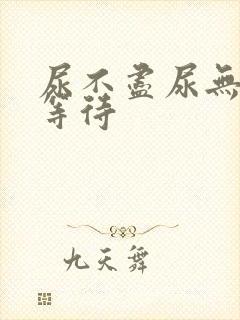 尿不盡尿無
等待
九天舞